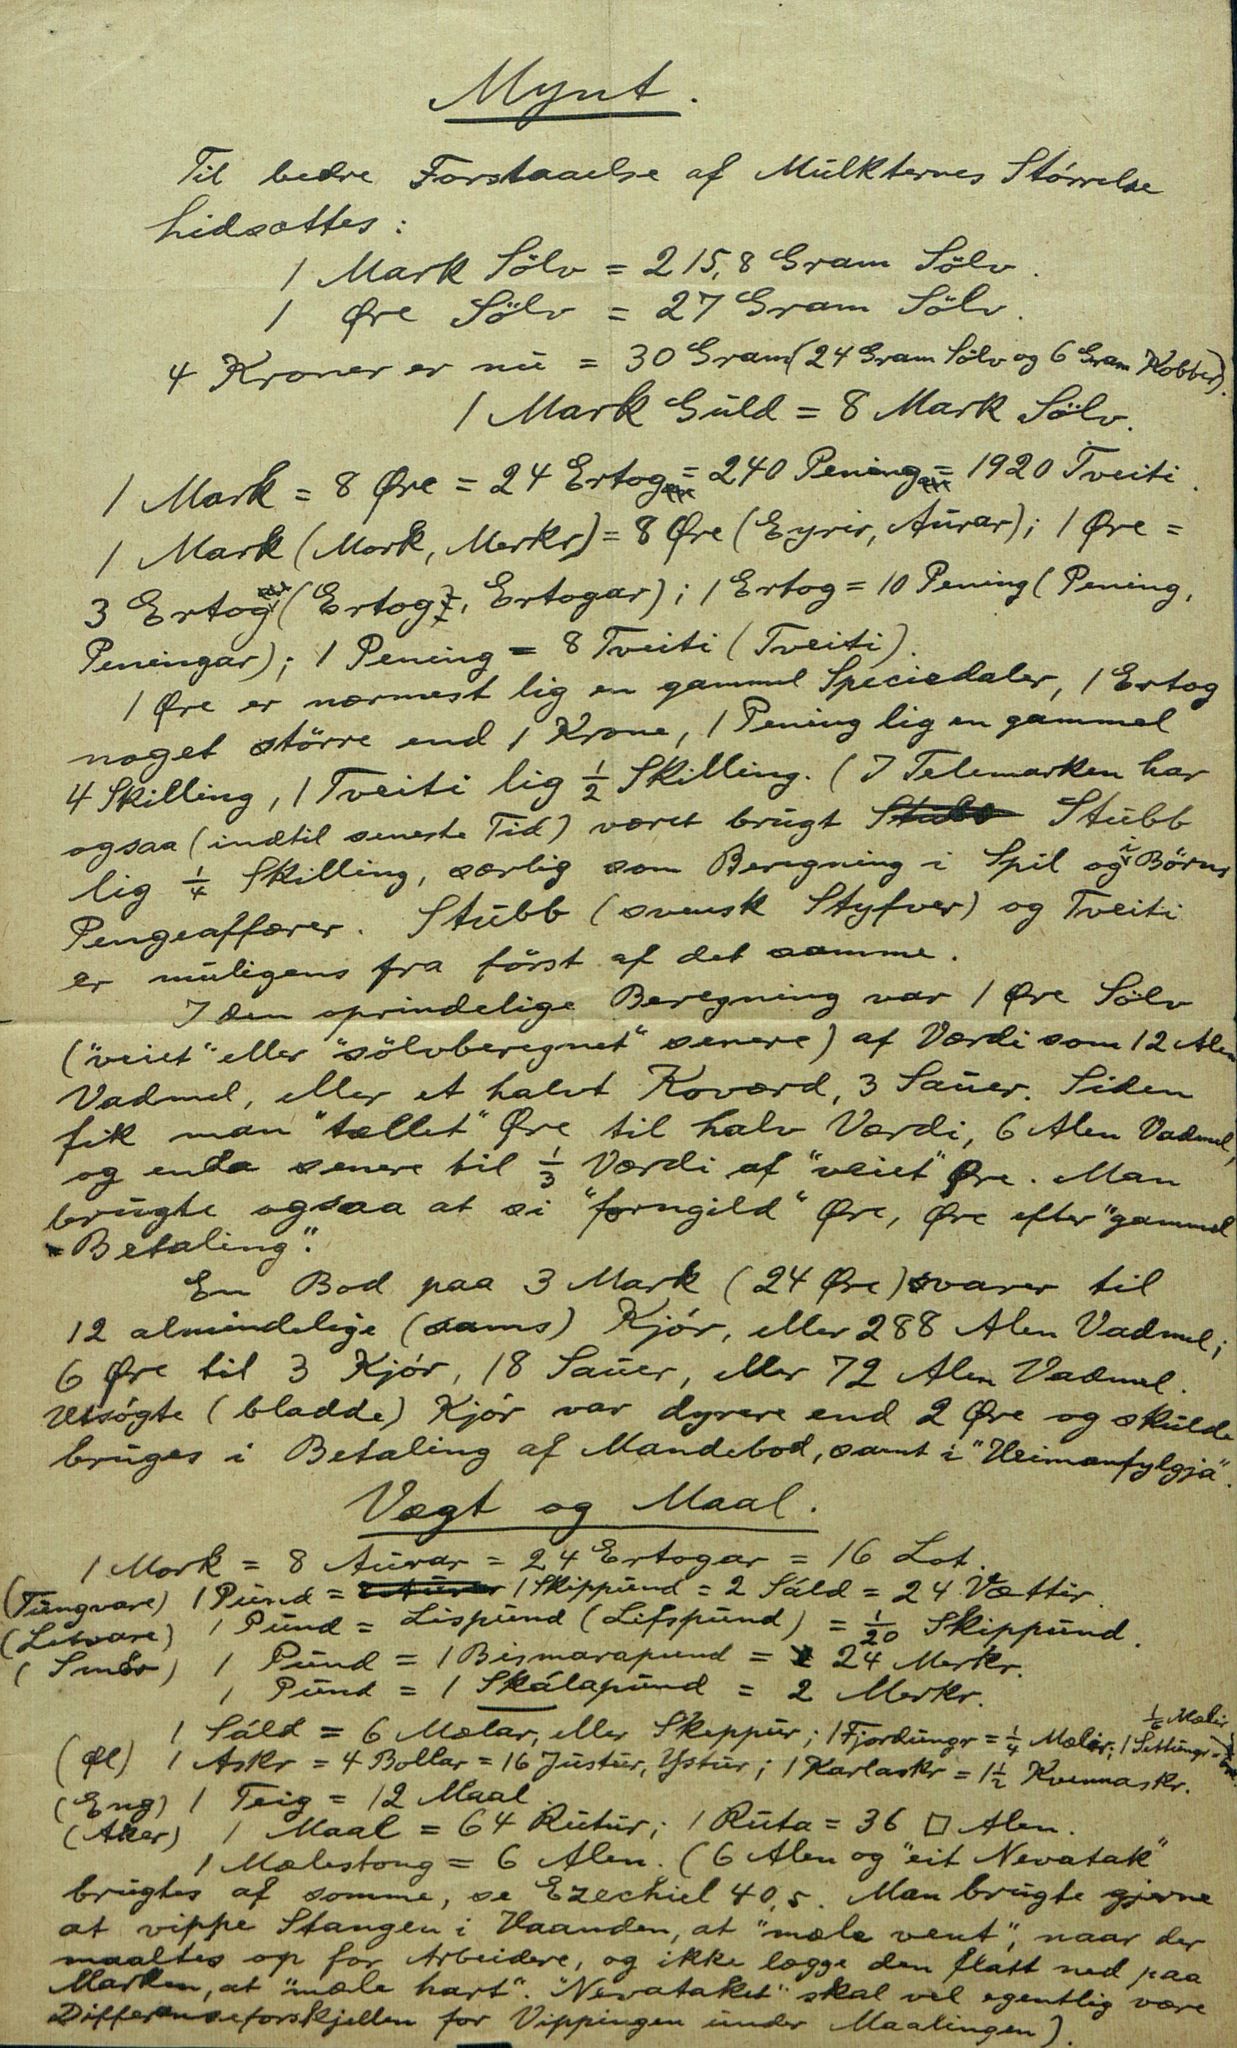 Mynt.
Til bedre Forstaaelse af Mulkternes Störrelse
hidsættes:
1 Mark Sölv = 215,8 Gram Sölv.
1 Øre Sölv = 27 Gram Sölv.
4 Kroner er nu = 30 Gram (24 Gram Sölv og 6 Gram Kobber).
1 Mark Guld = 8 Mark Sölv.
1 Mark = 8 Øre = 24 Ertog = 240 Pening = 1920 Tveiti.
1 Mark (Mork, Merkr) = 8 Øre (Eyrir, Aurar); 1 Øre =
3 Ertog (Ertog, Ertogar); 1 Ertog = 10 Pening (Pening,
Peningar); 1 Pening = 8 Tveiti (Tveiti).
1 Øre er nærmest lig en gammel Speciedaler, 1 Ertog
noget större end 1 Krone, 1 Pening lig en gammel
4 Skilling, 1 Tveiti lig ½ Skilling. (I Telemarken har
ogsaa (indtil seneste Tid) været brugt Stubb
lig ¼ Skilling, særlig som Beregning i Spil og i Börns
Pengeaffærer. Stubb (svensk Styfver) og Tveiti
er muligens fra först af det samme.
I den oprindelige Beregning var 1 Øre Sölv
("veiet" eller "sölvberegnet" senere) af Værdi som 12 Alen
Vadmel, eller et halvt Koværd, 3 Sauer. Siden
fik man "tællet" Øre til halv Værdi, 6 Alen Vadmel,
og enda senere til ⅓ Værdi af "veiet" Øre. Man
brugte ogsaa at si "forngild" Øre, Øre efter "gammel
Betaling".
En Bod paa 3 Mark (24 Øre) svarer til
12 almindelige (sams) Kjör, eller 288 Alen Vadmel;
6 Øre til 3 Kjör, 18 Sauer, eller 72 Alen Vadmel.
Utsögte (bladde) Kjör var dyrere end 2 Øre og skulde
bruges i Betaling af Mandebod, samt i "Heimanfylgja".
Vægt og Maal.
1 Mork = 8 Aurar = 24 Ertogar = 16 Lot.
(Tungvare) 1 Pund = 1 Skippund = 2 Sáld = 24 Vættur.
(Letvare) 1 Pund = Lispund (Lifspund) = 1/20 Skippund.
(Smör) 1 Pund = 1 Bismarapund = 24 Merkr.
1 Pund = 1 Skálapund = 2 Merkr.
1 Sáld = 6 Mælar, eller Skeppur; 1 Fjordungr = ¼ Mælir; 1 Settungr = 1/6 Mælir
(Øl) 1 Askr = 4 Bollar = 16 Justur, Ystur; 1 Karlaskr = 1½ Kvennaskr.
(Eng) 1 Teig = 12 Maal.
(Aker) 1 Maal = 64 Rutur; 1 Ruta = 36 □ Alen.
1 Mælestong = 6 Alen. (6 Alen og "eit Nevatak"
brugtes af somme, se Ezechiel 40,5. Man brugte gjerne
at vippe Stangen i Haanden, at "mæle vent", naar der
maaltes op for Arbeidere, og ikke lægge den flatt ned paa
Marken, at "mæle hart". "Nevataket" skal vel egentlig være
Differenseforskjellen for Vippingen under Maalingen).